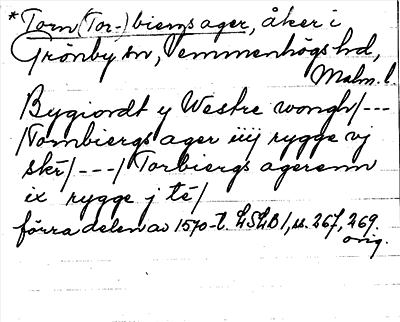 *Torn(Tor-)biergs ager, åker i
Grönby sn, Vemmenhögs hd,
Malm. l.
Bygiordt y Westre wongh/---
/Tornbiergs ager iiij rygge vj
skr/---/Torbiergs agerenn
ix rygge j té/
förra delen av 1570-t. LSLB 1, s. 267, 269.
orig.